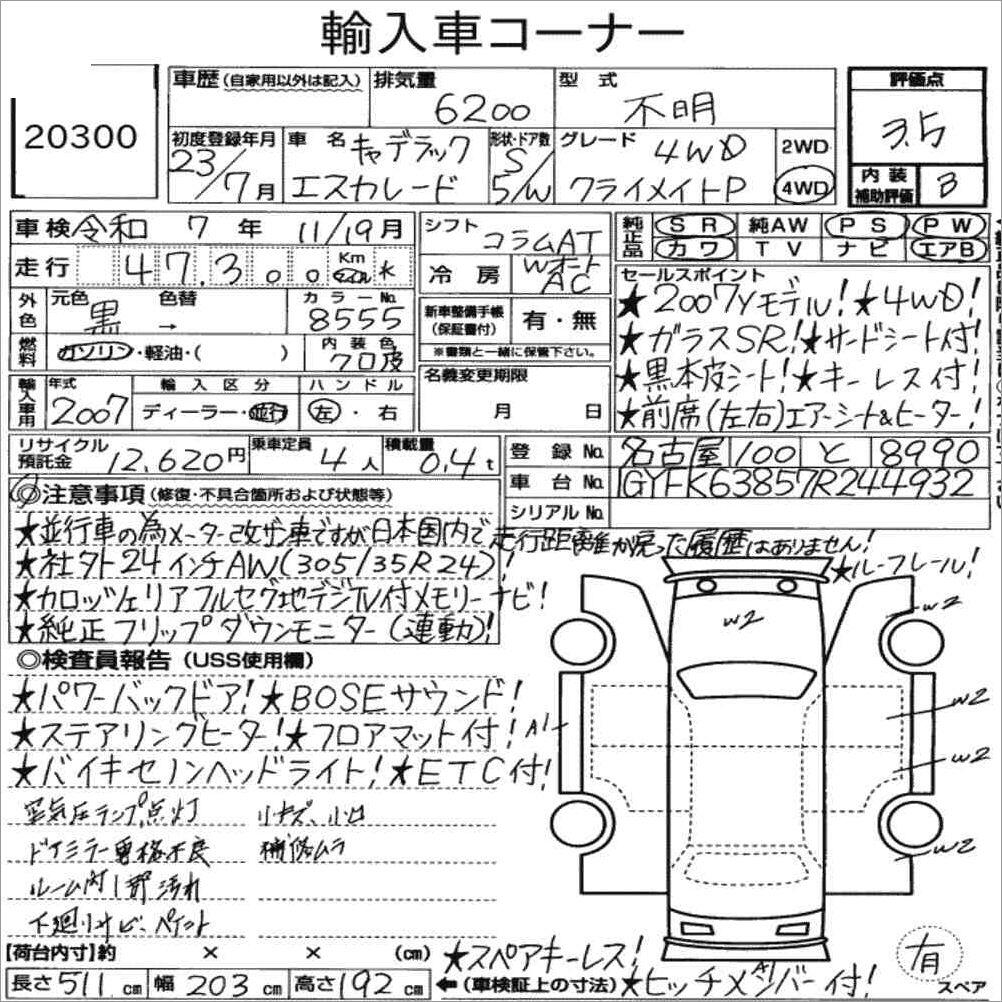 輸入車コーナー
20300
車歴(自家用以外は記入) 排気量 6200 型式 不明 評価点 3.5
初度登録年月 23/7月 車名 キャデラック エスカレード 形状・ドア数 S 5/W グレード 4WD クライメイトP 2WD 4WD 内装補助評価 B
車検 令和 7年 11/19月 シフト コラムAT 純正品 SR 純AW PS PW
カワ TV ナビ エアB
走行 47,300 Km マイル K 冷房 Wオート AC
外色 元色 黒 色替 → カラーNo. 8555 新車整備手帳(保証書付) 有・無
※書類と一緒に保管下さい。
燃料 ガソリン・軽油・( ) 内装色 クロ皮
輸入車用 年式 2007 輸入区分 ディーラー・並行 ハンドル 左・右 名義変更期限 月 日
セールスポイント
★2007Yモデル!★4WD!
★ガラスSR!★サードシート付!
★黒本皮シート!★キーレス付!
★前席(左右)エアーシート&ヒーター!
リサイクル預託金 12,620円 乗車定員 4人 積載量 0.4t
登録No. 名古屋 100 と 8990
車台No. 1GYFK63857R244932
シリアルNo.
◎注意事項(修復・不具合箇所および状態等)
★並行車の為メーター改ザン車ですが日本国内で走行距離が戻った履歴はありません!
★社外24インチAW(305/35R24)!
★ルーフレール!
★カロッツェリアフルセグ地デジTV付メモリーナビ!
★純正フリップダウンモニター(連動)!
◎検査員報告(USS使用欄)
★パワーバックドア!★BOSEサウンド!
★ステアリングヒーター!★フロアマット付!
★バイキセノンヘッドライト!★ETC付!
空気圧ランプ点灯 リキズ、小凹
ドアミラー固格不良 補修ムラ
ルーム内1部汚れ
下廻りサビ、ペイント
W2
W2
A1
W2
W2
W2
【荷台内寸】約 × × (cm)
長さ511cm 幅203cm 高さ192cm ←(車検証上の寸法)
★スペアキーレス!
★ヒッチメンバー付!
有
スペア